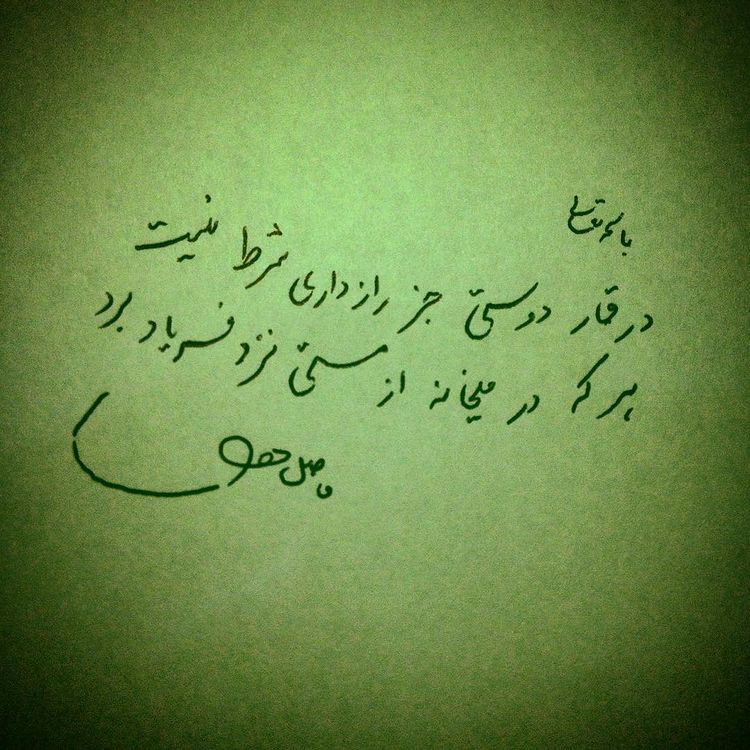 باسمه تعالی
در قمار دوستی جز رازداری شرط نیست
هر که در میخانه از مستی نزد فریاد برد
فاضل